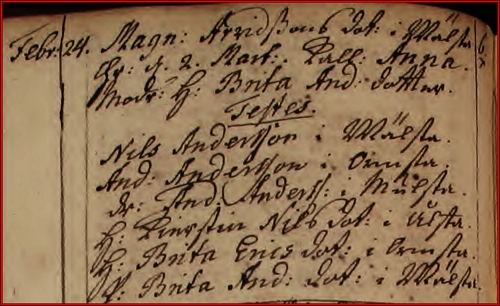 Febr: 24. Magn: Arvidssons dot: i Mälsta
Chr: d. 2. Mart: Kall: Anna.
Modr: H: Brita And: dotter.
Testes.
Nils Andersson i Mälsta.
And: Andersson i Ormsta.
dr: And: Anderss: i Mälsta.
H: Kierstin Nils dot: i
H: Brita Erics dot: i Ormsta.
P: Brita And: dot: i Mälsta.